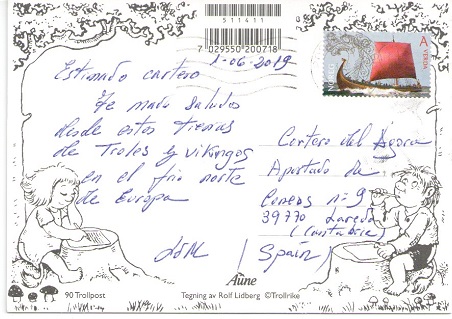 511411
7029550200718
A VERDEN
NORGE
1-06-2019
Estimado cartero
Te mando saludos
desde estas tierras
de Troles y Vikingos
en el frio norte
de Europa
Cartero del Agora
Apartado de
Correos nº 9
39770 Laredo
(Cantabria)
(Spain)
Aune
90 Trollpost
Tegning av Rolf Lidberg ©Trollrike